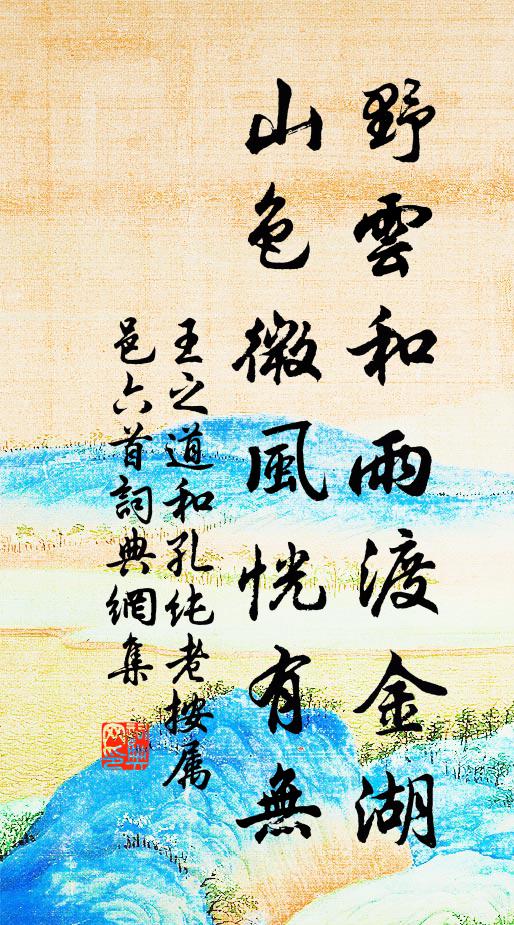 野雲和雨渡金湖
山色微風恍有無
王之道和孔纯老按属
邑六首詞典網集